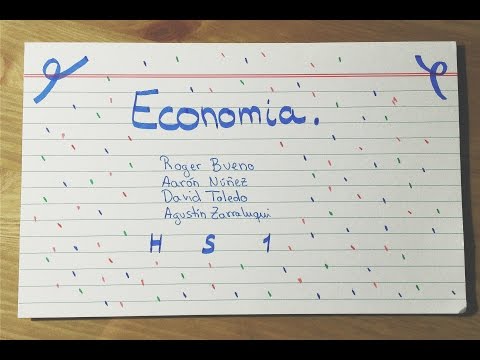 Economia.
Roger Bueno
Aarón Núñez
David Toledo
Agustín Zarraluqui
H S 1